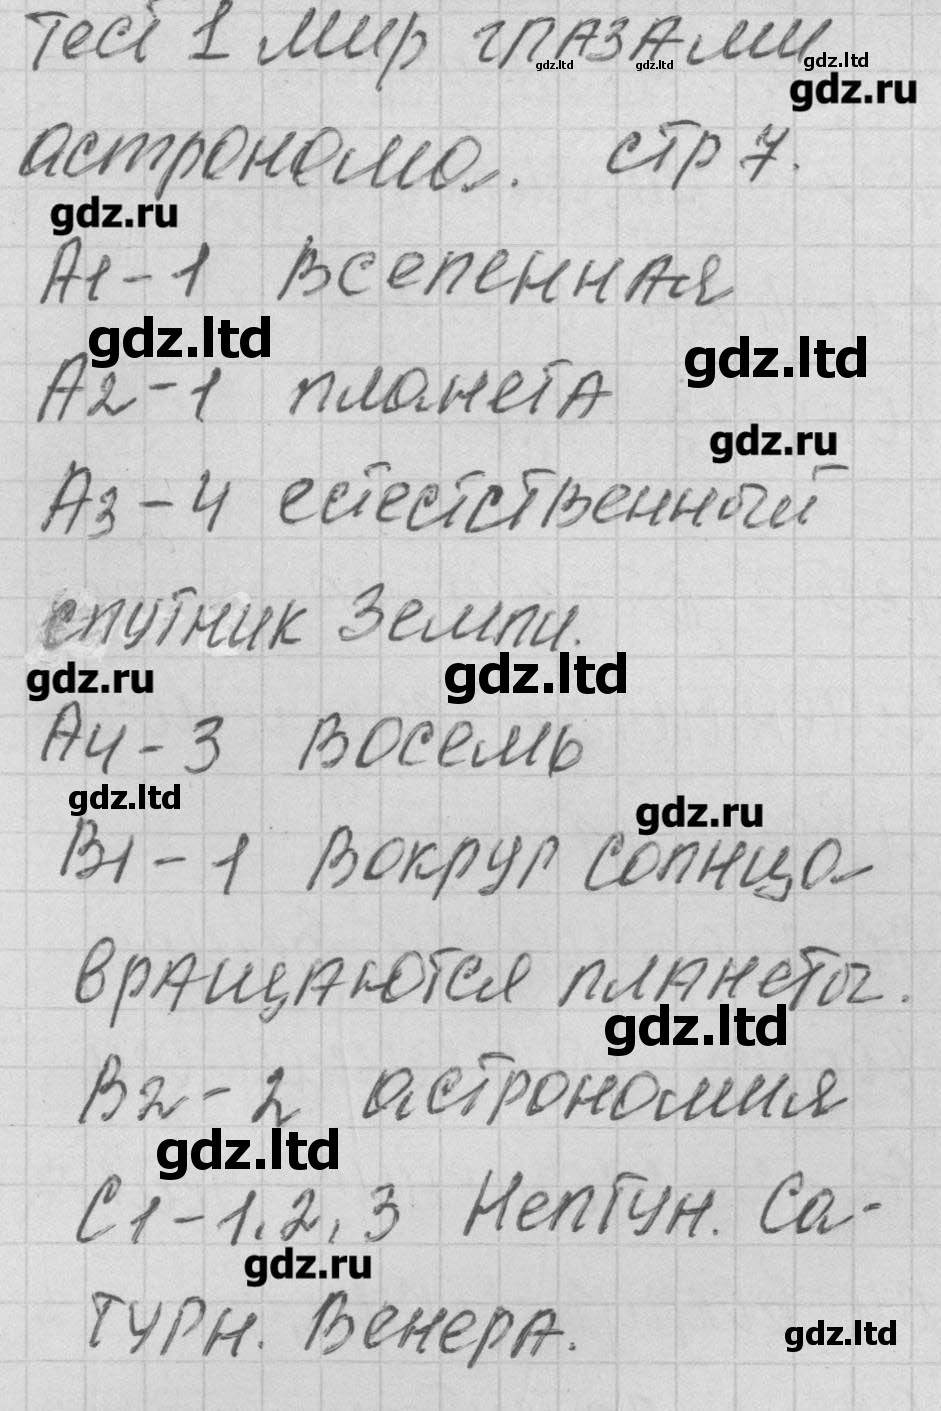 Тест 1 Мир глазами
gdz.ltd gdz.ltd gdz.ltd
gdz.ru
астронома. стр 7.
gdz.ru
А1-1 Вселенная
gdz.ltd
gdz.ltd
А2-1 планета
gdz.ru
А3-4 естественный
спутник Земли.
gdz.ru gdz.ltd
А4-3 Восемь
gdz.ltd gdz.ru
В1-1 Вокруг солнца
вращаются планеты.
gdz.ltd
В2-2 астрономия
gdz.ltd
С1-1,2,3 Нептун. Са-
gdz.ru
турн. Венера.
gdz.ltd